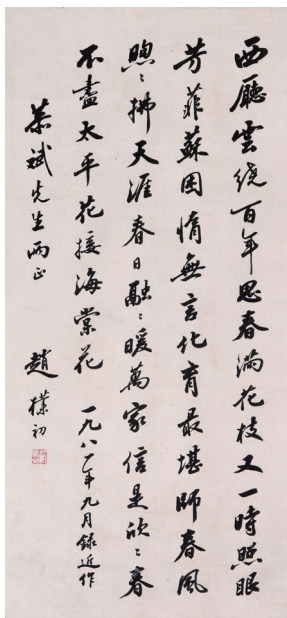 西廳雲繞百年思春滿花枝又一時照眼
芳菲蘇困惰無言化育最堪師春風
煦〻拂天涯春日融〻暖萬家信是欣〻春
不盡太平花接海棠花 一九八一年九月錄近作
恭斌先生兩正
趙樸初